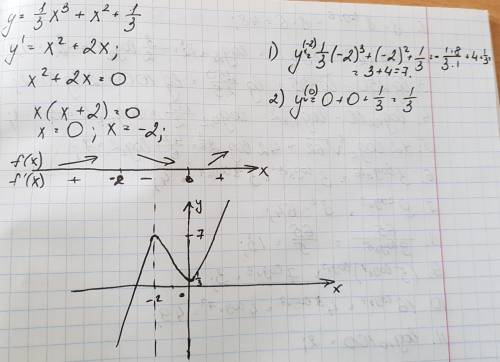 y = 1/3 x³ + x² + 1/3
y' = x² + 2x;
x² + 2x = 0
x(x+2) = 0
x = 0 ; x = -2;
1) y(-2) = 1/3 (-2)³ + (-2)² + 1/3 = -1·8/3·1 + 4 + 1/3 =
= 3 + 4 = 7.
2) y(0) = 0 + 0 + 1/3 = 1/3
f(x)
f'(x) + -2 - 0 + x
y
7
1/3
-2 0 x